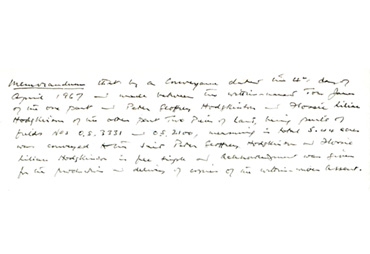 Memorandum that by a Conveyance dated the 4th day of
April 1967 and made between the within-named Tom James
of the one part and Peter Geoffrey Hodgkinson and Florrie Lilian
Hodgkinson of the other part Two Pieces of land, being parts of
fields Nos O.S. 3331 and O.S. 2100, measuring in total 5.44 acres
was conveyed to the said Peter Geoffrey Hodgkinson and Florrie
Lilian Hodgkinson in fee simple and Acknowledgment was given
for the production and delivery of copies of the within-written Assent.